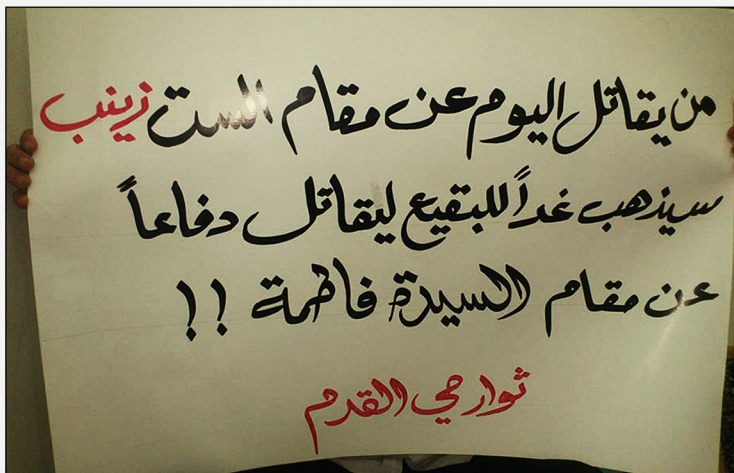 من يقاتل اليوم عن مقام الست زينب
سيذهب غداً للبقيع ليقاتل دفاعاً
عن مقام السيدة فاطمة !!
ثوار حي القدم